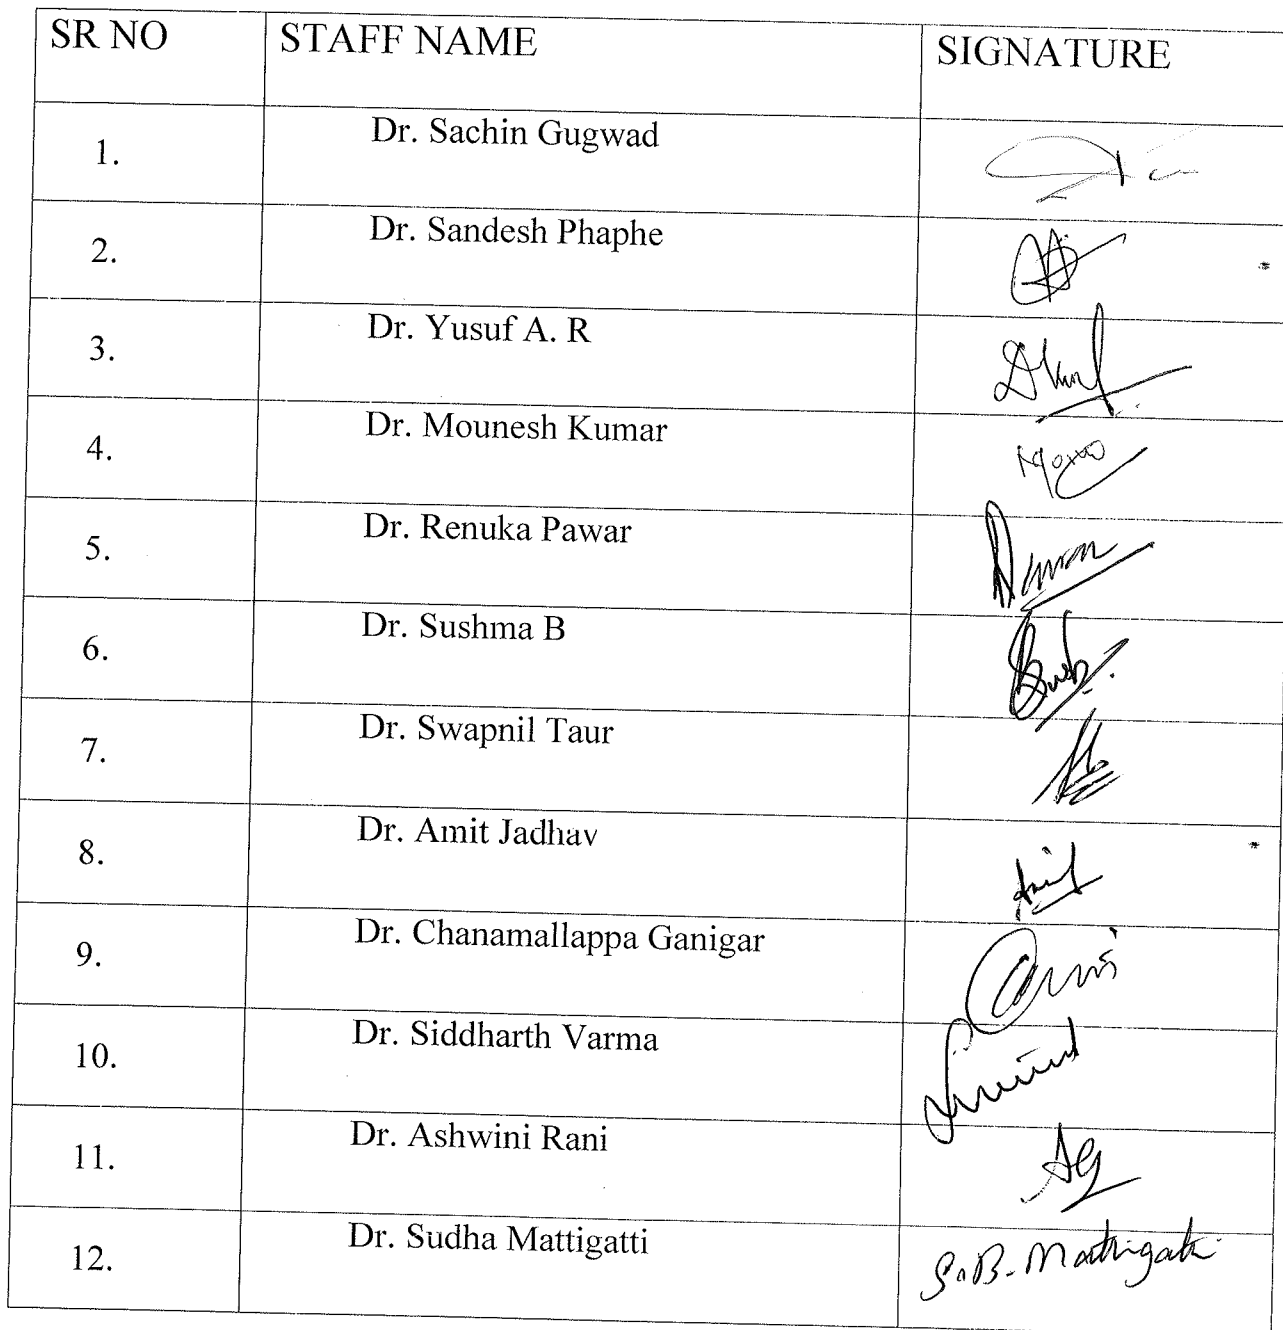 SR NO STAFF NAME SIGNATURE
1. Dr. Sachin Gugwad
2. Dr. Sandesh Phaphe
3. Dr. Yusuf A. R
4. Dr. Mounesh Kumar
5. Dr. Renuka Pawar
6. Dr. Sushma B
7. Dr. Swapnil Taur
8. Dr. Amit Jadhav
9. Dr. Chanamallappa Ganigar
10. Dr. Siddharth Varma
11. Dr. Ashwini Rani
12. Dr. Sudha Mattigatti S.B. Mattigatti